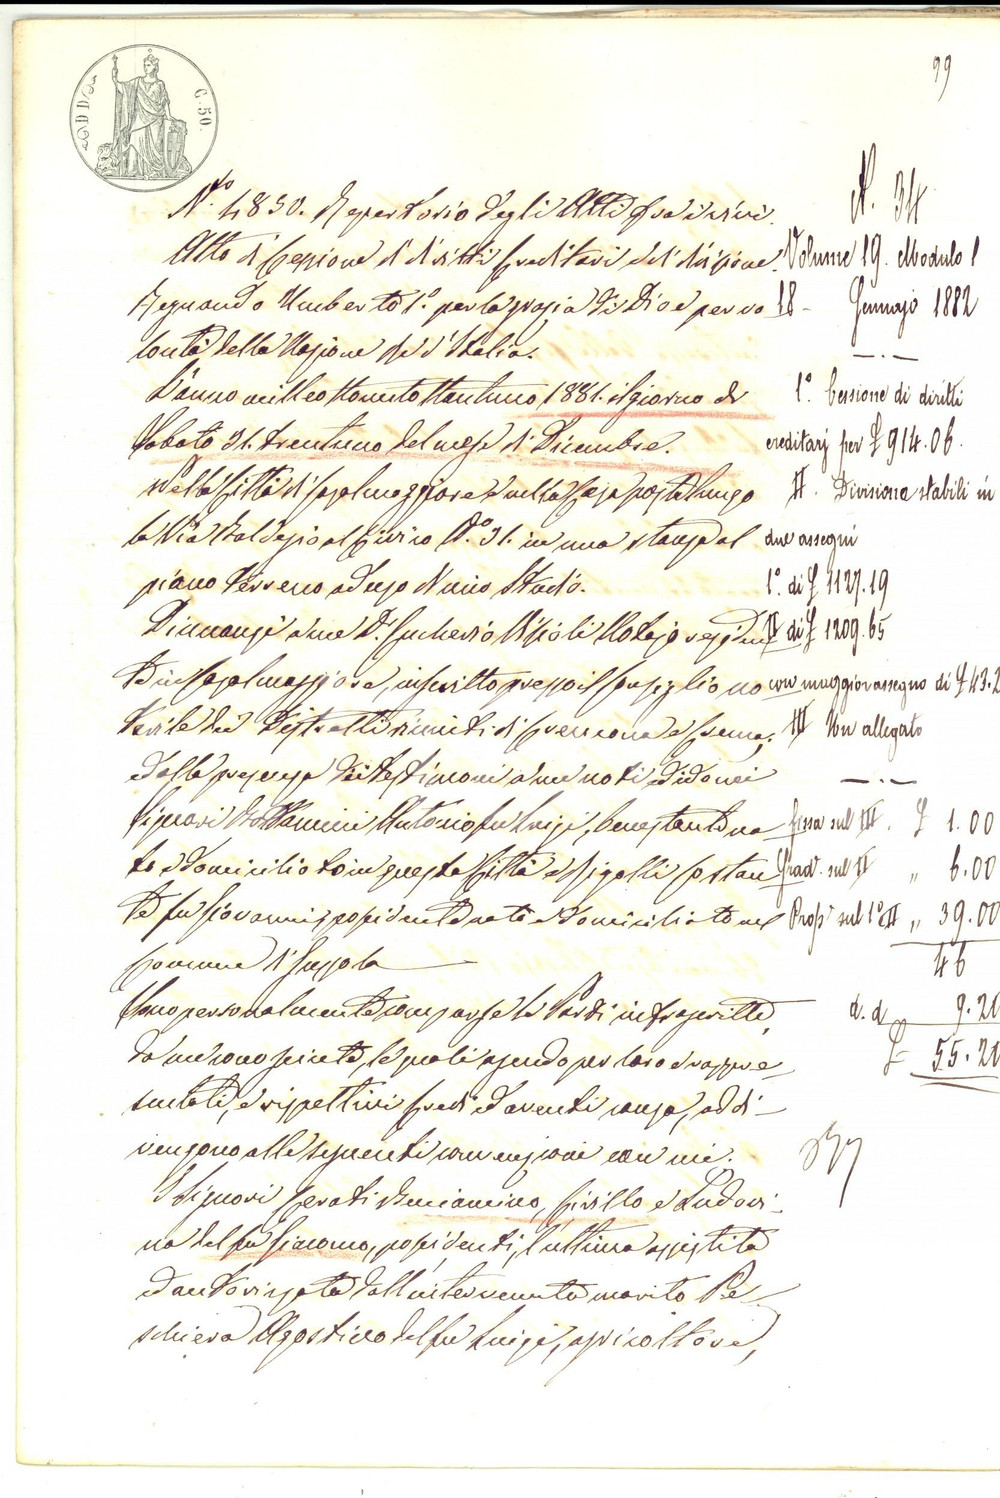 99
C. 50.
N.° 4850. Repertorio degli Atti fra i vivi.
Atto di Cessione di diritti Ereditari e di divisione.
Regnando Umberto I° per la grazia di Dio e per vo
lontà della Nazione Re d'Italia.
L'anno milleottocentottantuno 1881. il giorno di
Sabato 31. trentuno del mese di Dicembre.
Nella Città di Casalmaggiore e nella Casa posta lungo
la Via Baldesio al Civico N.° 31. in una stanza al
piano terreno ad uso di mio Studio.
Dinnanzi a me D.r Notajo residen
te in Casalmaggiore, inscritto presso il Consiglio no
tarile dei Distretti riuniti di Cremona e Crema,
dalla presenza dei testimoni a me noti ed idonei
Signori Antonio fu Luigi, benestante na
to e domiciliato in questa Città e Sigalli Costan
te fu Giovanni, possidente nato e domiciliato nel
Comune di Gussola
Sono personalmente comparse le Parti infrascritte,
da me conosciute, le quali agendo per loro e rappre
sentati, e rispettivi Eredi ed aventi causa, addi-
vengono alle seguenti convenzioni con me.
I Signori Cerati Beniamino, Cirillo e Ludovi-
na del fu Giacomo, possidenti, l'ultima assistita
ed autorizzata dall'intervenuto marito Pe-
schiera Agostino del fu Luigi, agricoltore,
N. 34
Volume 19. Modulo 1
18 - Gennajo 1882
1° Cessione di diritti
ereditarj per £ 914.06.
II. Divisione stabili in
due assegni
1° di £ 1127.19
II di £ 1209.65
con maggior assegno di £ 43.2
III Un allegato
fissa sul III. £ 1.00
Grad. sul II „ 6.00
Prop. sul 1° II „ 39.00
46
d. d 9.20
£ 55.20